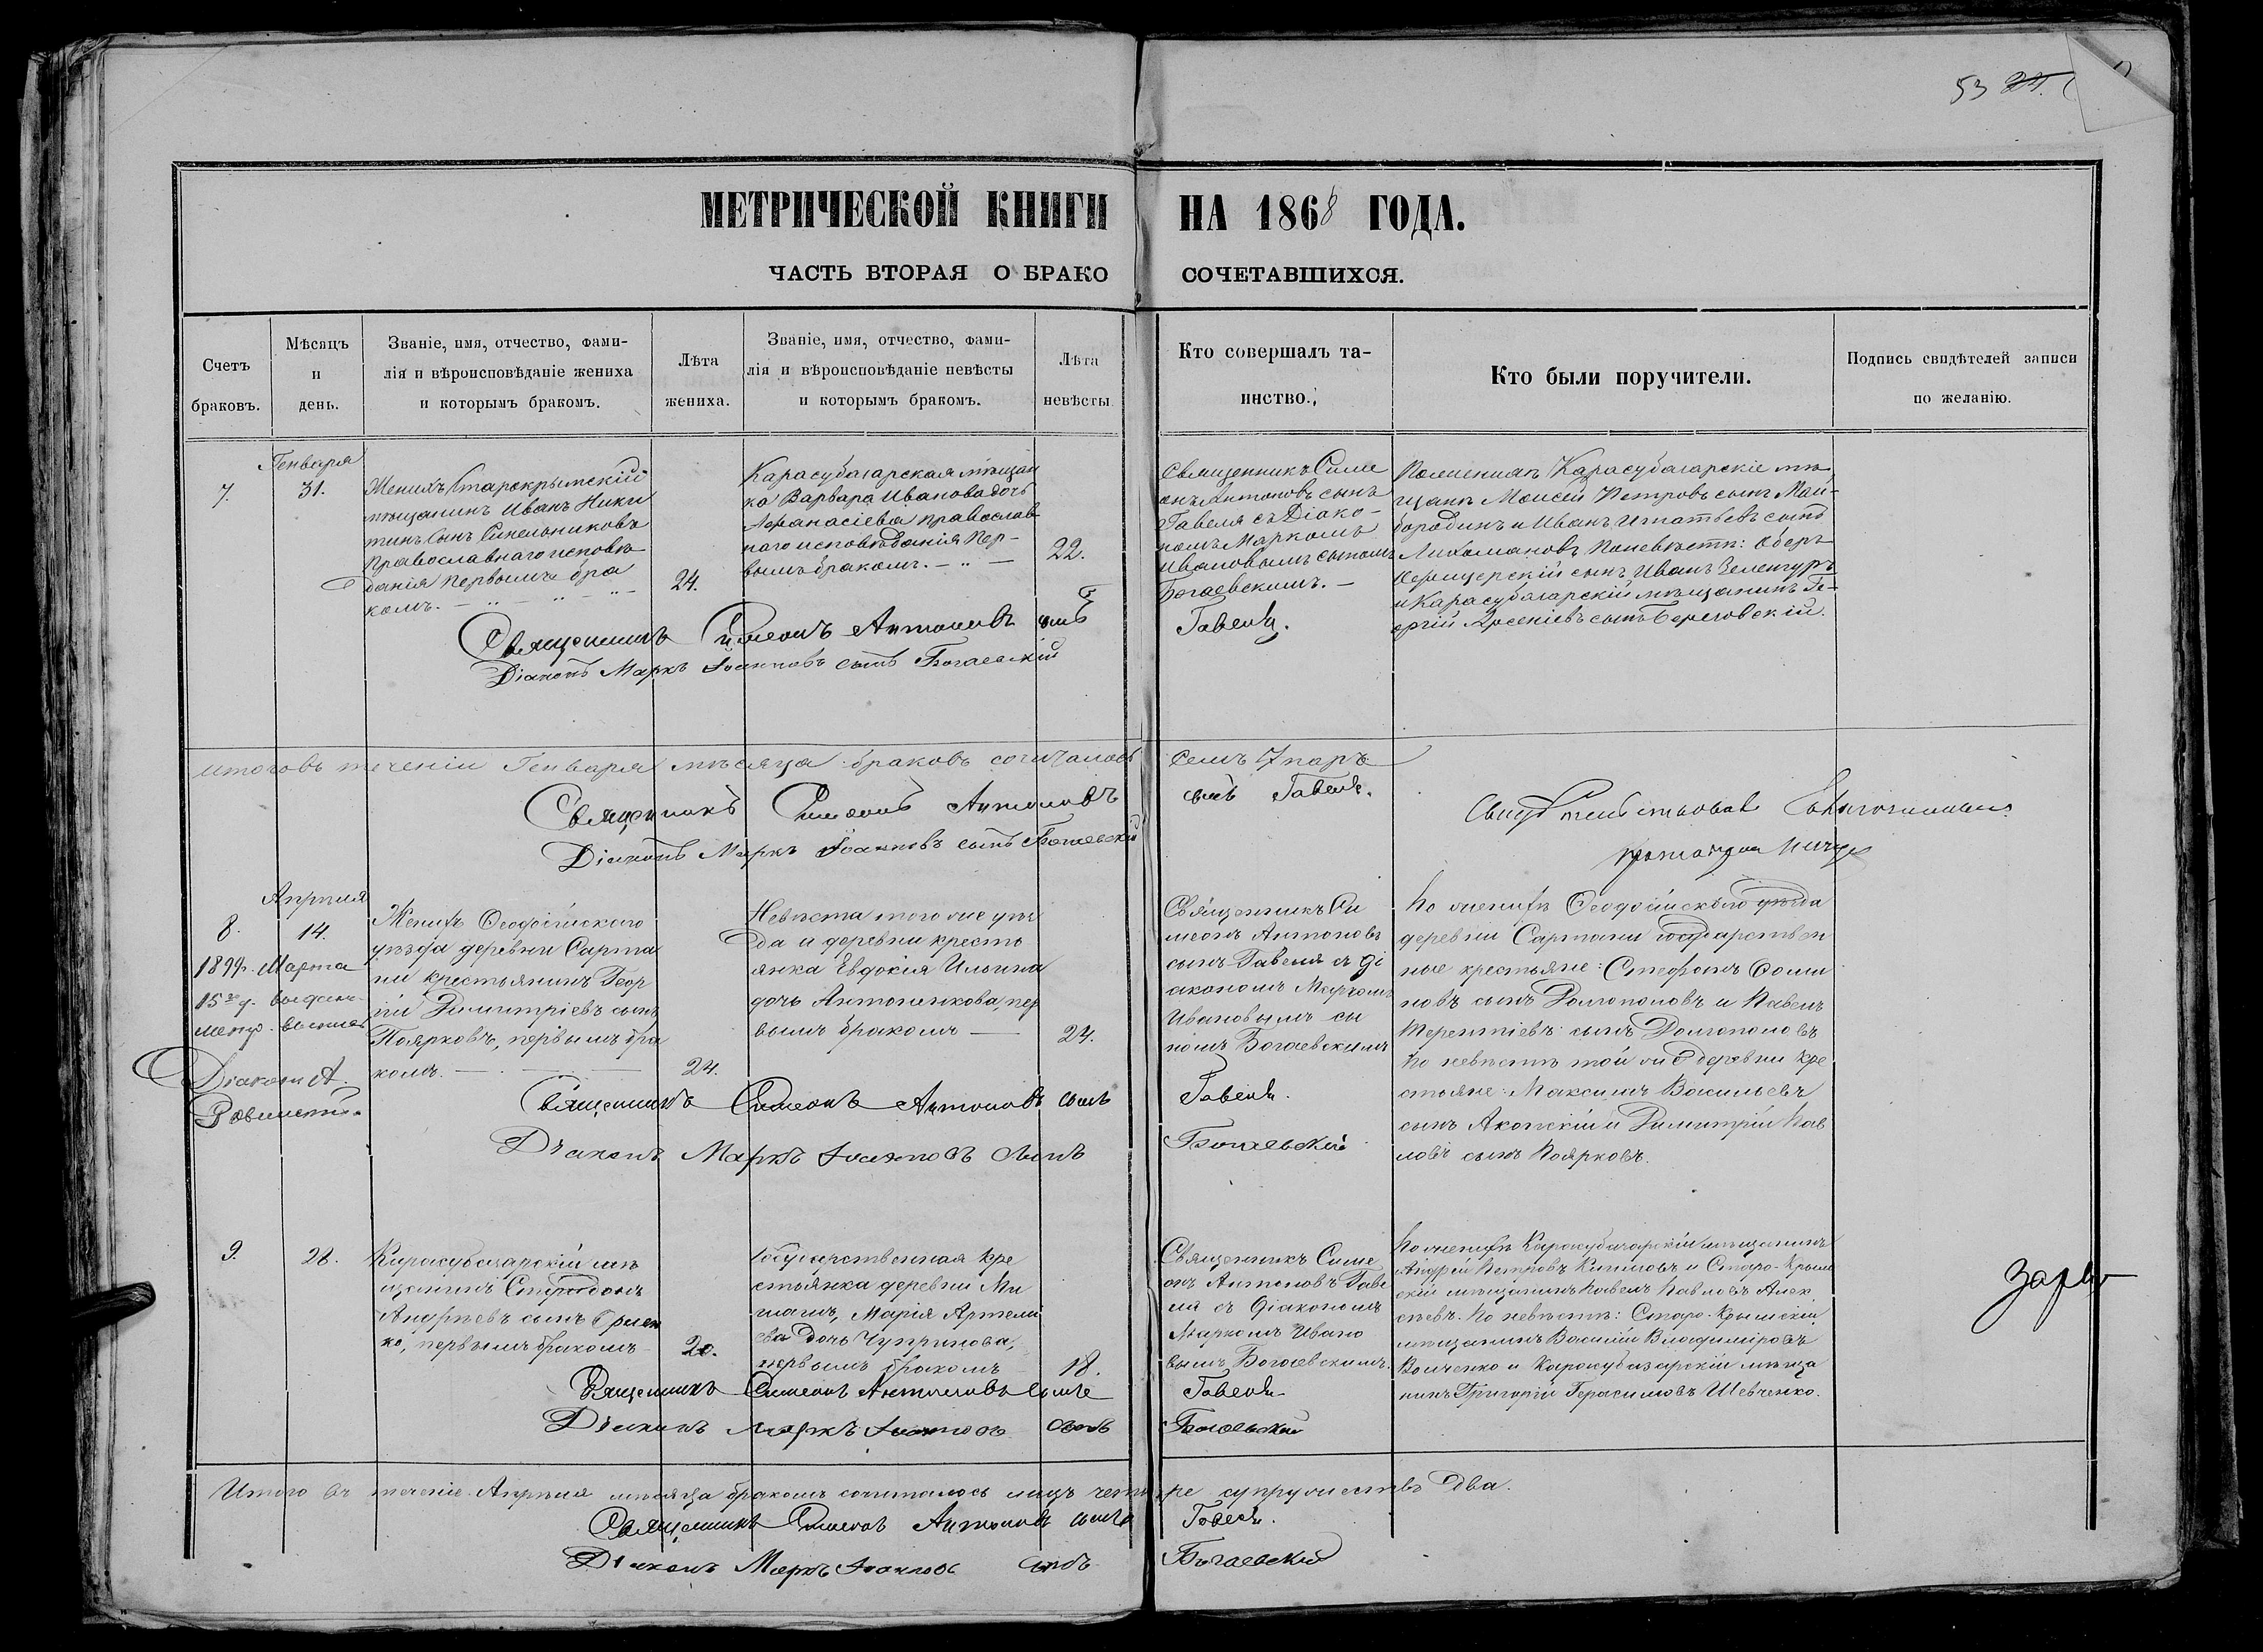 53
МЕТРИЧЕСКОЙ КНИГИ НА 1868 ГОДА.
ЧАСТЬ ВТОРАЯ О БРАКО СОЧЕТАВШИХСЯ.
Счетъ браковъ.
Мѣсяцъ и день.
Званіе, имя, отчество, фами-
лія и вѣроисповѣданіе жениха
и которымъ бракомъ.
Лѣта жениха.
Званіе, имя, отчество, фами-
лія и вѣроисповѣданіе невѣсты
и которымъ бракомъ.
Лѣта невѣсты.
Кто совершалъ та-
инство.
Кто были поручители.
Подпись свидѣтелей записи
по желанію.
Генваря
7.
31.
Женихъ Старокрымскій
мѣщанинъ Иванъ Ники
тинъ сынъ Синельниковъ
православнаго исповѣ
данія первымъ бра
комъ.
24.
Карасубазарская мѣщан
ка Варвара Иванова дочь
Афанасіева православ
наго исповѣданія пер-
вымъ бракомъ.
22.
Священникъ Симе
онъ Антоновъ сынъ
Гавеля съ Діако-
номъ Маркомъ
Ивановымъ сыномъ
Богаевскимъ.
По женихѣ Карасубазарскіе мѣ
щане Моисей Петровъ сынъ Май-
бородинъ и Иванъ Игнатьевъ сынъ
Лихомановъ По невѣстѣ: Оберъ
Офицерскій сынъ Иванъ
и Карасубазарскій мѣщанинъ Ге-
оргій Арсеніевъ сынъ Береговскій.
Священникъ Симеонъ Антоновъ сынъ Гавеля.
Діаконъ Маркъ Іоанновъ сынъ Богаевскій
Итого въ теченіи Генваря мѣсяца браковъ сочиталось семъ 7 паръ
Священникъ Симеонъ Антоновъ сынъ Гавеля.
Діаконъ Маркъ Іоанновъ сынъ Богаевскій
Свидѣтельствовалъ Благочинный
Апрѣля
8.
14.
1899г. Марта
15го д.
Діаконъ А.
Женихъ Ѳеодосійскаго
уѣзда деревни Сарта
ни крестьянинъ Геор
гій Димитріевъ сынъ
Поярковъ, первымъ бра
комъ.
24.
Невѣста того же уѣз
да и деревни кресть
янка Евдокія Ильина
дочь Антоненкова, пер
вымъ бракомъ
24.
Священникъ Си
меонъ Антоновъ
сынъ Гавеля съ Ді
акономъ Маркомъ
Ивановымъ сы
номъ Богаевскимъ
По женихѣ Ѳеодосійскаго уѣзда
деревни Сартани государствен
ные крестьяне: Стефанъ Ѳоми
новъ сынъ Долгополовъ и Павелъ
Терентіевъ сынъ Долгополовъ
По невѣстѣ той же деревни кре
стьяне: Максимъ Васильевъ
сынъ Акопскій и Димитрій Пав
ловъ сынъ Поярковъ.
Священникъ Симеонъ Антоновъ сынъ Гавеля.
Діаконъ Маркъ Іоанновъ сынъ Богаевскій
9.
28.
Карасубазарскій мѣ
щанинъ Спиридонъ
Андреевъ сынъ Гриен
ко, первымъ бракомъ
20.
Государственная кре
стьянка деревни Ми
шашъ, Марія Артемі
ева дочь Чупринова,
первымъ бракомъ
18.
Священникъ Симе
онъ Антоновъ Гаве
ля съ Діакономъ
Маркомъ Ивано
вымъ Богаевскимъ.
По женихѣ Карасубазарскій мѣщанинъ
Андрей Петровъ и Старо-Крым
скій мѣщанинъ Павелъ Павловъ Алек
сѣевъ. По невѣстѣ: Старо-Крымскій
мѣщанинъ Василій Владиміровъ
Волченко и Карасубазарскій мѣща
нинъ Григорій Герасимовъ Шевченко.
Священникъ Симеонъ Антоновъ сынъ Гавеля
Діаконъ Маркъ Іоанновъ сынъ Богаевскій
Итого въ теченіе Апрѣля мѣсяца бракомъ сочиталось лицъ четыре супружествъ два.
Священникъ Симеонъ Антоновъ сынъ Гавеля.
Діаконъ Маркъ Іоанновъ сынъ Богаевскій